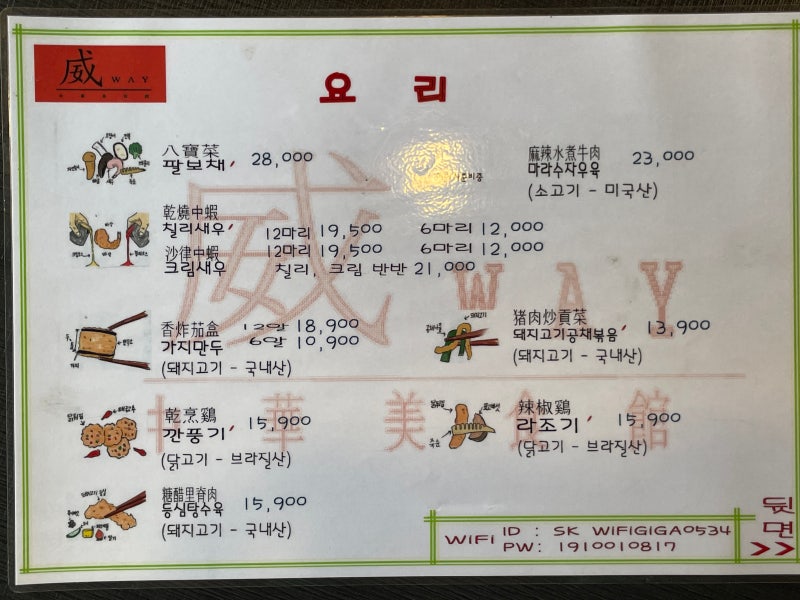 威 WAY
요 리
八寶菜
팔보채 28,000
麻辣水煮牛肉
마라수자우육 23,000
(소고기 - 미국산)
乾燒中蝦
칠리새우 12마리 19,500 6마리 12,000
沙律中蝦 12마리 19,500 6마리 12,000
크림새우 칠리, 크림 반반 21,000
香炸茄盒 18,900
가지만두 6알 10,900
(돼지고기 - 국내산)
猪肉炒貢菜
돼지고기공채볶음 13,900
(돼지고기 - 국내산)
乾烹鷄
깐풍기 15,900
(닭고기 - 브라질산)
辣椒鷄
라조기 15,900
(닭고기 - 브라질산)
糖醋里脊肉
등심탕수육 15,900
(돼지고기 - 국내산)
威 WAY
華 美 食 館
WIFI ID : SK WIFIGIGA0534
PW: 1910010817
뒷
면
>>